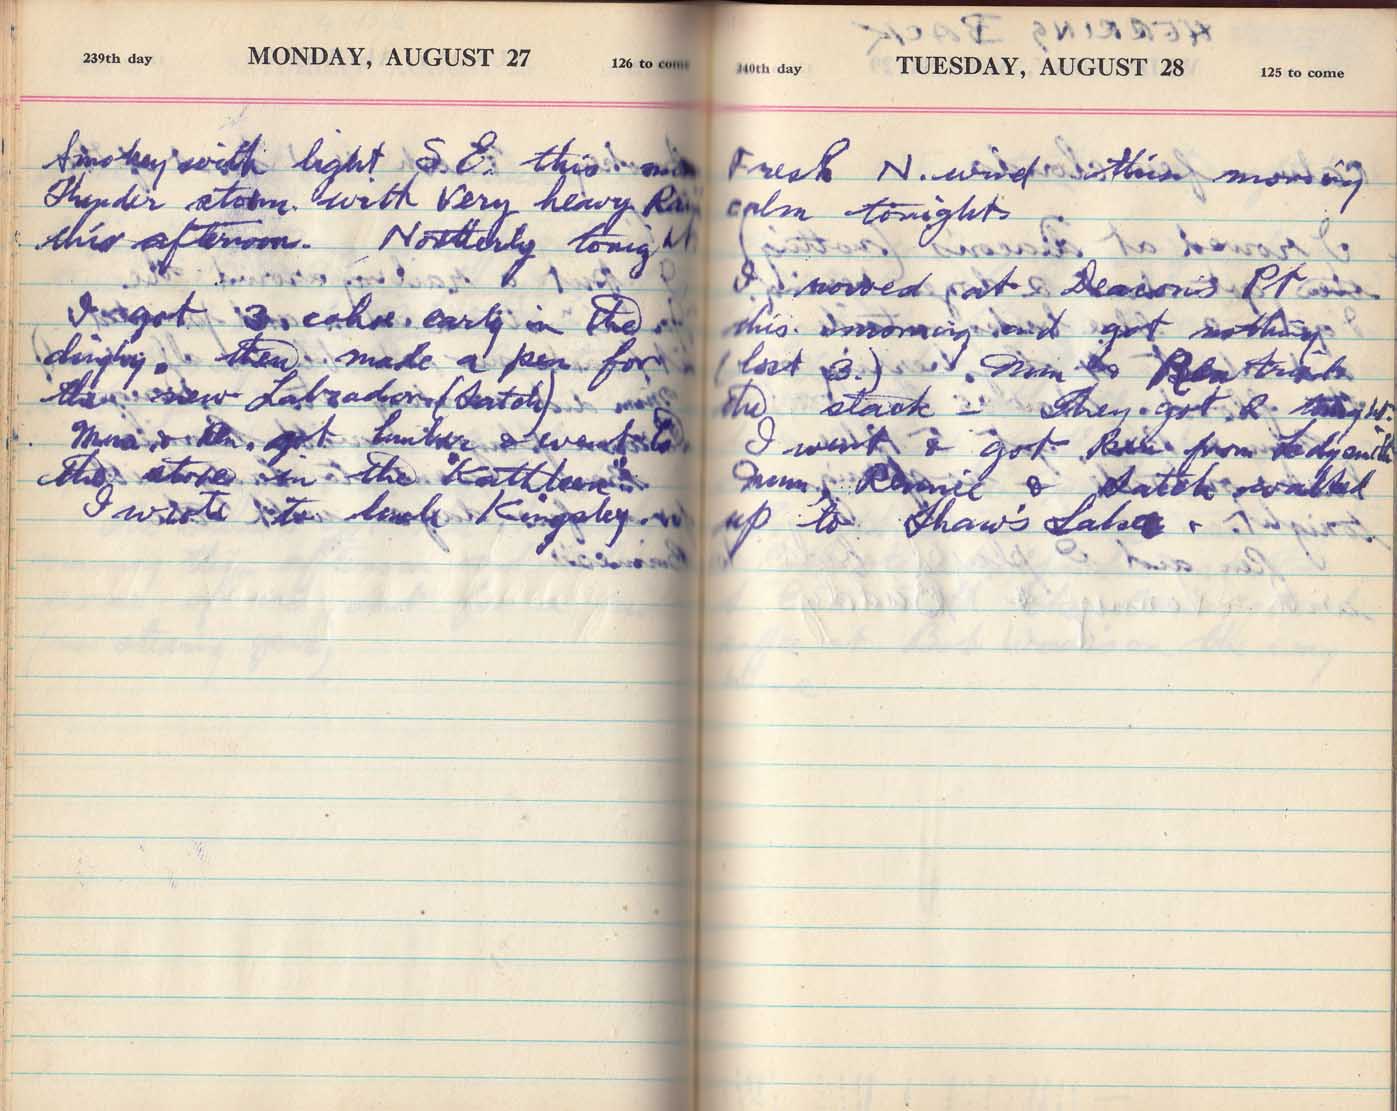 239th day MONDAY, AUGUST 27 126 to come
Smokey with light S.E. this
Thunder storm with very heavy Rain
this afternoon. Northerly tonight
I got 3 cohoe early in the
dinghy, then made a pen for
the new Labrador (Satch)
Mum & Ken got lumber & went to
the store in the "Kathleen".
I wrote to Kingsley
340th day TUESDAY, AUGUST 28 125 to come
Fresh N. wind this morning
calm tonight
I rowed at Deacons Pt
this morning and got nothing
(lost 3.) Mum &
the stack - They got 2
I went & got Ken from Ladysmith
Mum, Rennie & Satch walked
up to Shaw's Lake.
HERRING BACK